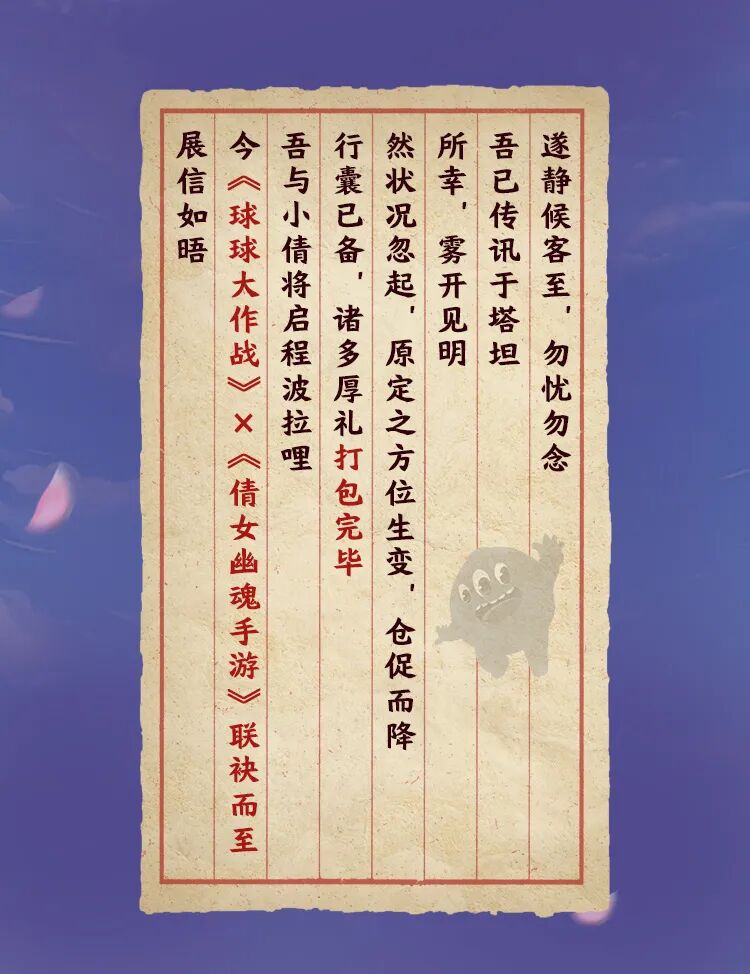 展信如晤
今《球球大作战》×《倩女幽魂手游》联袂而至
吾与小倩将启程波拉哩
行囊已备，诸多厚礼打包完毕
然状况忽起，原定之方位生变，仓促而降
所幸，雾开见明
吾已传讯于塔坦
遂静候客至，勿忧勿念